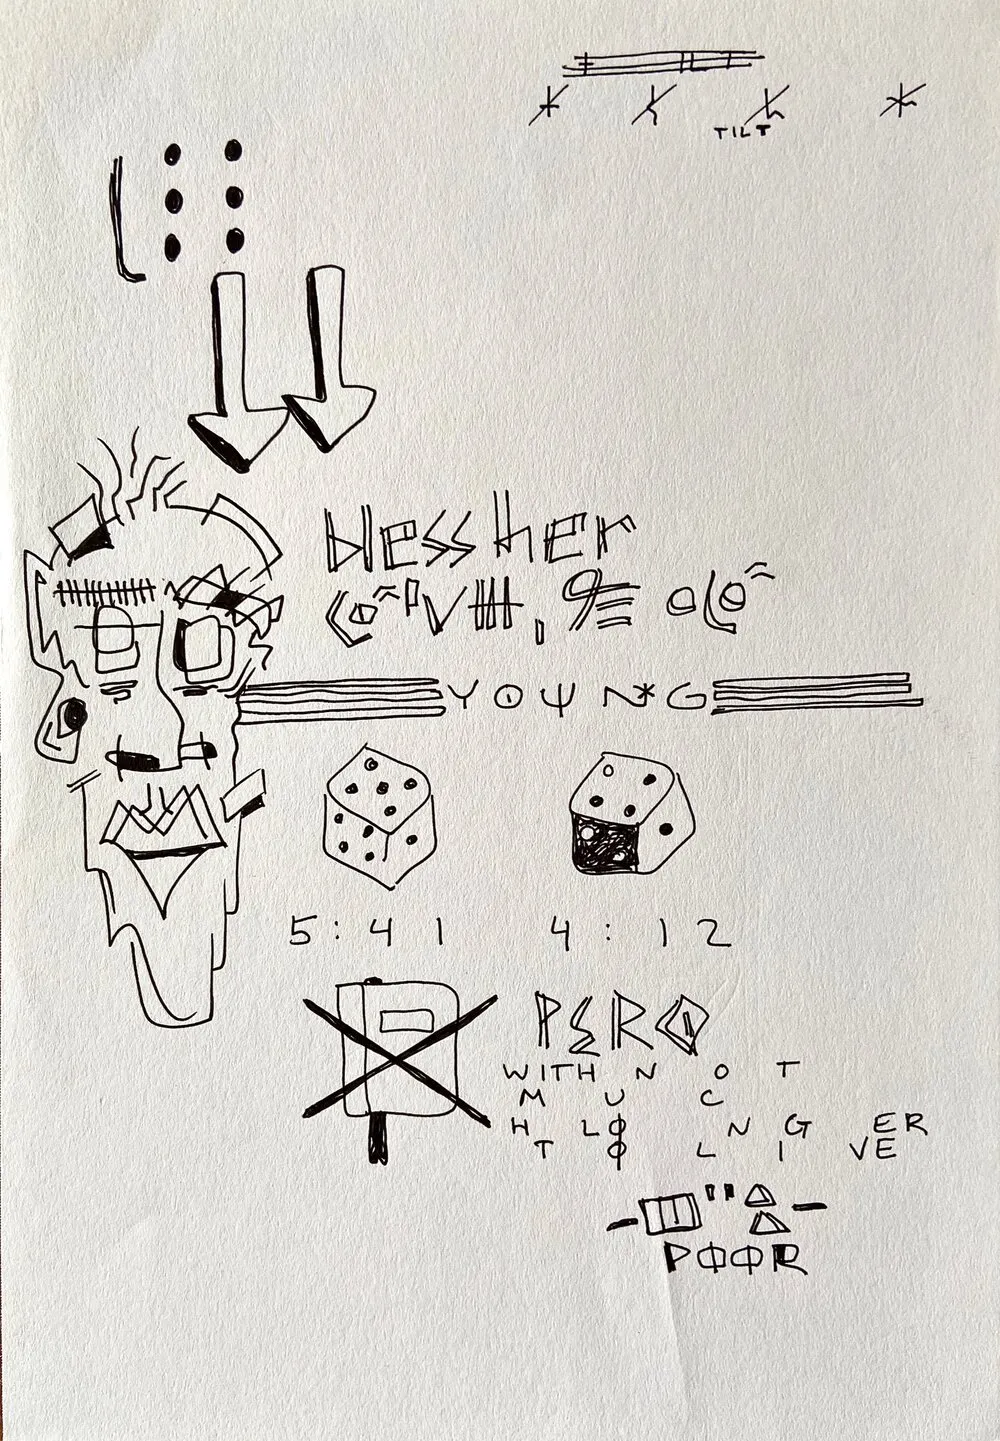 TILT
bless her
YOUN*G
5:41 4:12
PERO
WITH N O T
M U C
H LO N G ER
T O L I VE
POOR